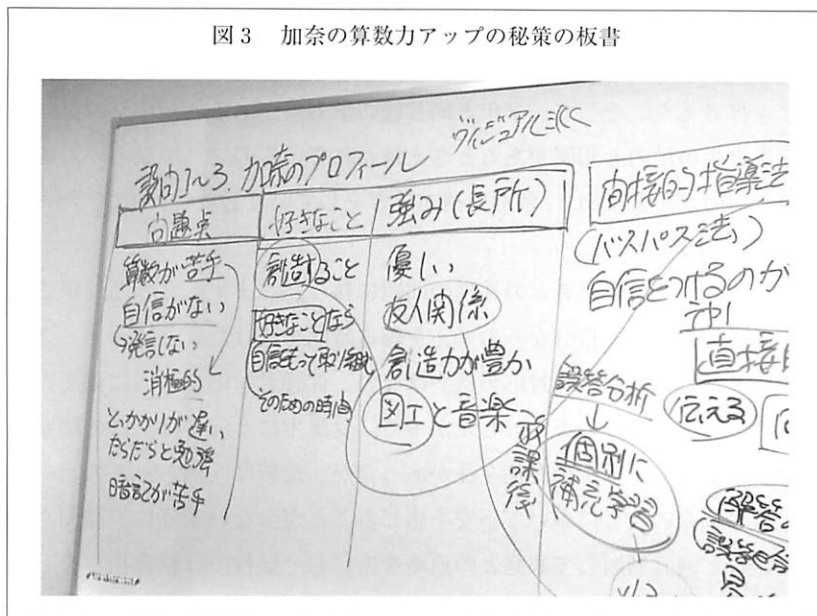 図3 加奈の算数力アップの秘策の板書
ヴィジュアルに
設問1~3. 加奈のプロフィール
問題点
算数が苦手
自信がない
発言しない
消極的
とっかかりが遅い
だらだらと勉強
暗記が苦手
好きなこと
創造すること
好きなことなら
自信もって取り組む
そのための時間
強み(長所)
優しい
友人関係
創造力が豊か
図工と音楽
放課後
間接的指導法
(バスパス法)
自信をつけるのが
直接
誤答分析
↓
個別に
補充学習
伝える
解答の
誤答